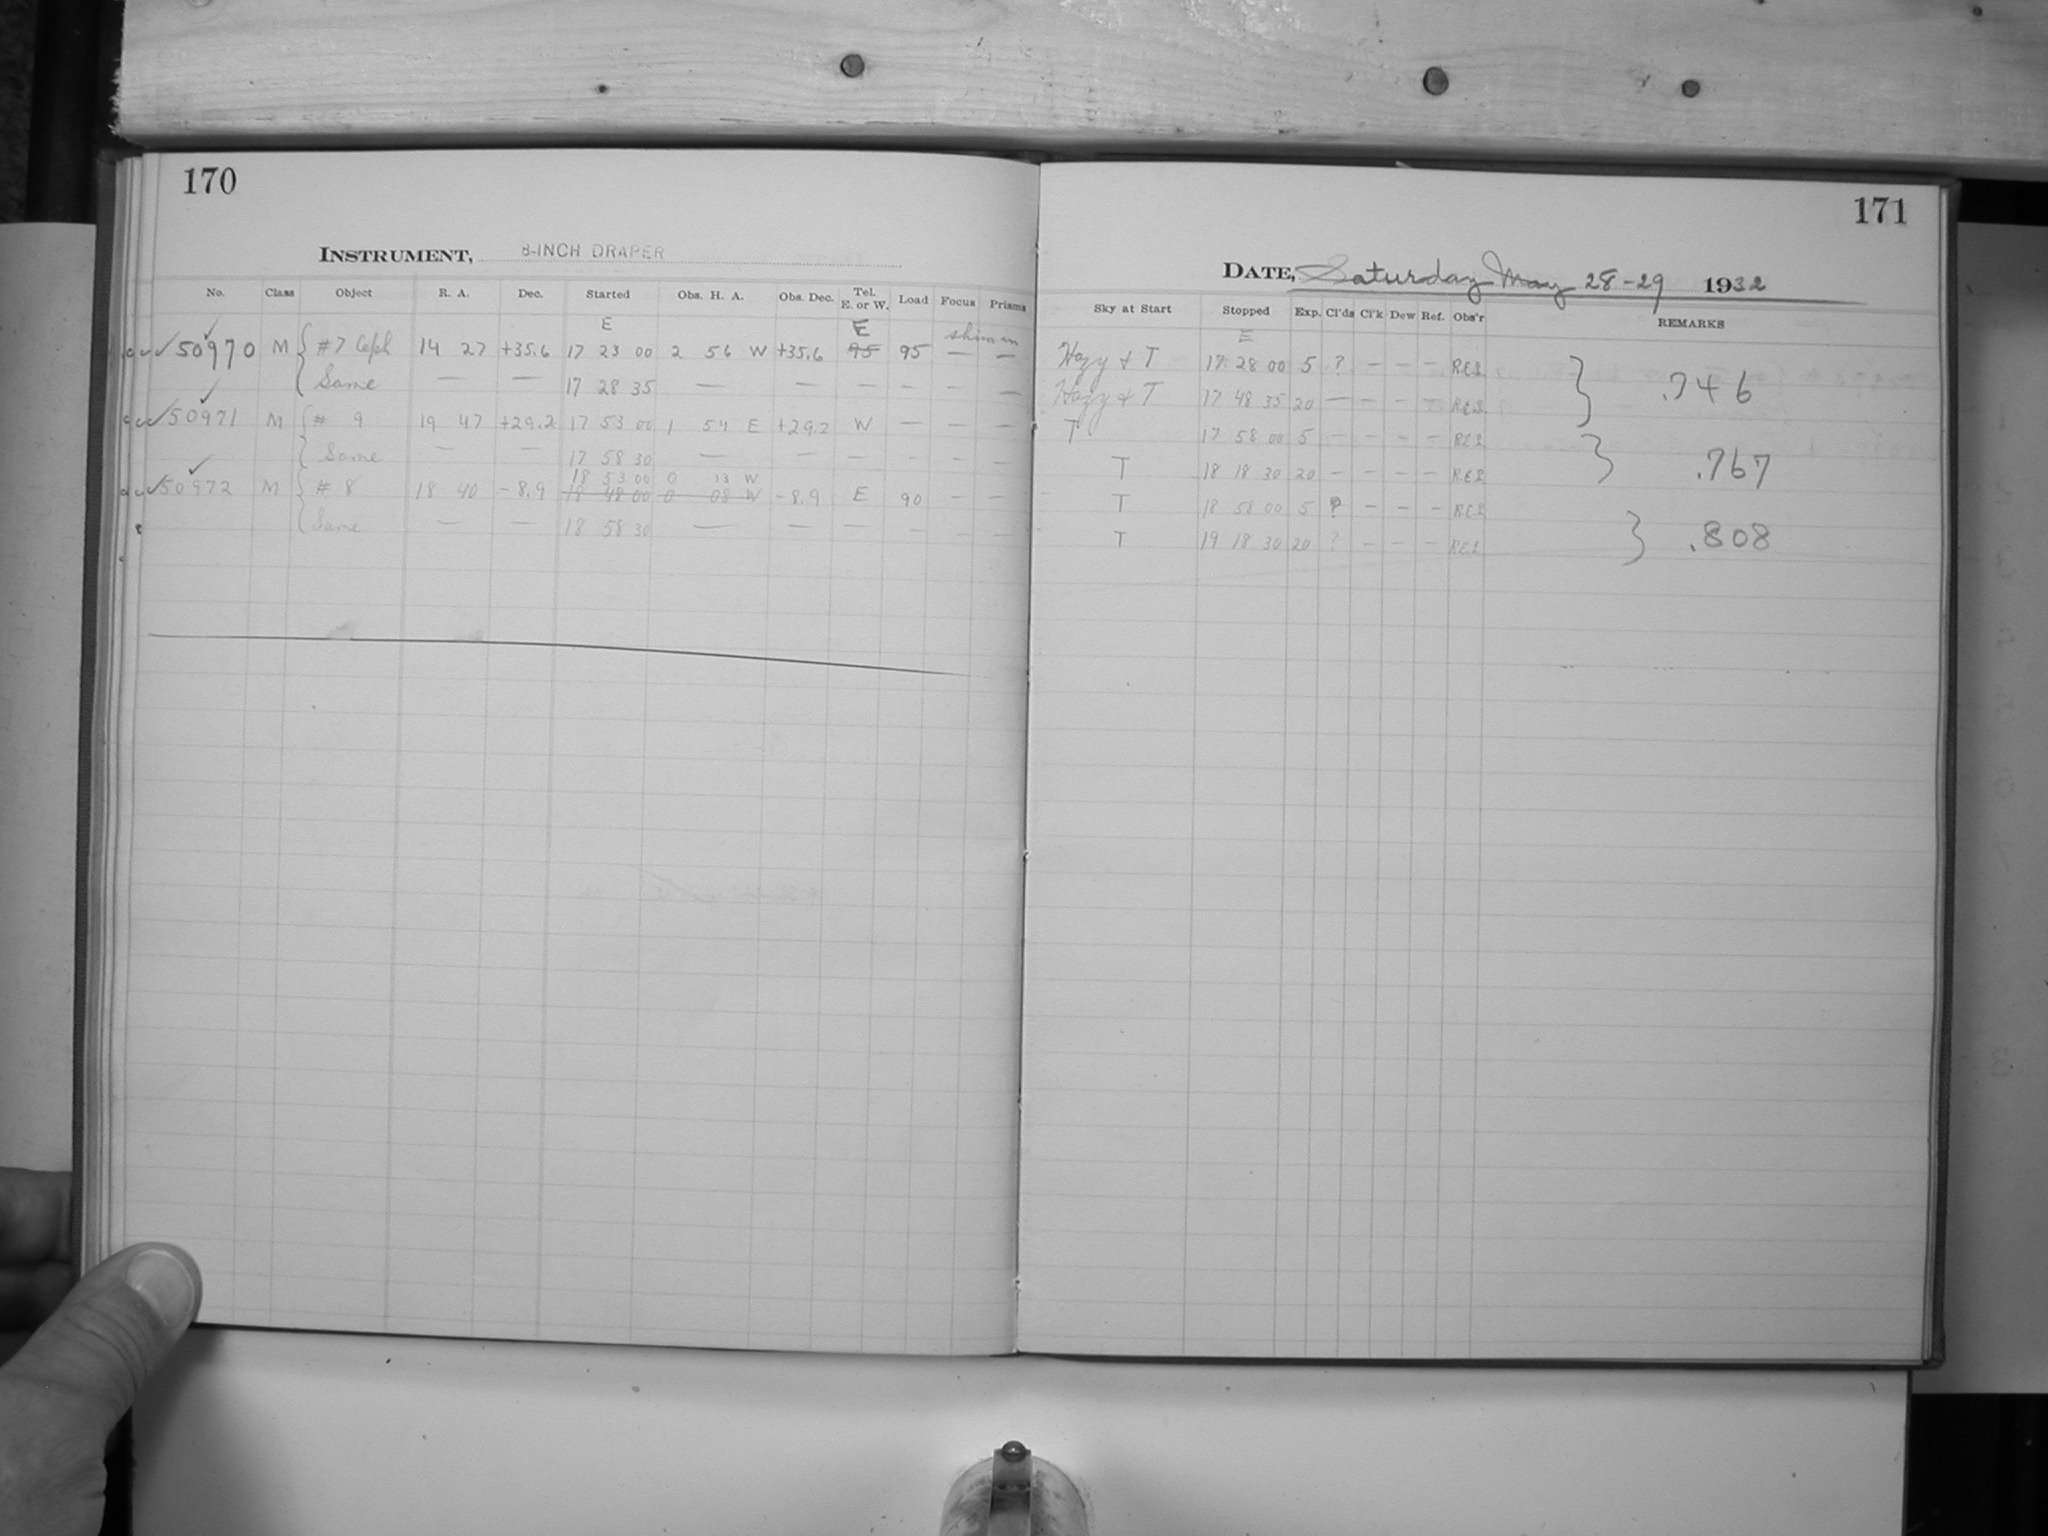 170
INSTRUMENT, 8-INCH DRAPER
No. Class Object R. A. Dec. Started Obs. H. A. Obs. Dec. Tel. E. or W. Load Focus Prisms
E E shim in
50970 M #7 Ceph 14 27 +35.6 17 23 00 2 56 W +35.6 95 95 — —
Same — — 17 28 35 — — — — — —
50971 M # 9 19 47 +29.2 17 53 00 1 54 E +29.2 W — — —
Same — — 17 58 30 — — — — — —
18 53 00 0 13 W
50972 M # 8 18 40 -8.9 18 48 00 0 08 W -8.9 E 90 — —
Same — — 18 58 30 — — — — — —
171
DATE, Saturday May 28-29 1932
Sky at Start Stopped Exp. Cl'ds Cl'k Dew Ref. Obs'r REMARKS
E
Hazy & T 17 28 00 5 ? — — — R.E.S.
.746
Hazy & T 17 48 35 20 — — — — R.E.S.
T 17 58 00 5 — — — — R.E.S.
.767
T 18 18 30 20 — — — — R.E.S.
T 18 58 00 5 ? — — — R.E.S.
.808
T 19 18 30 20 ? — — — R.E.S.